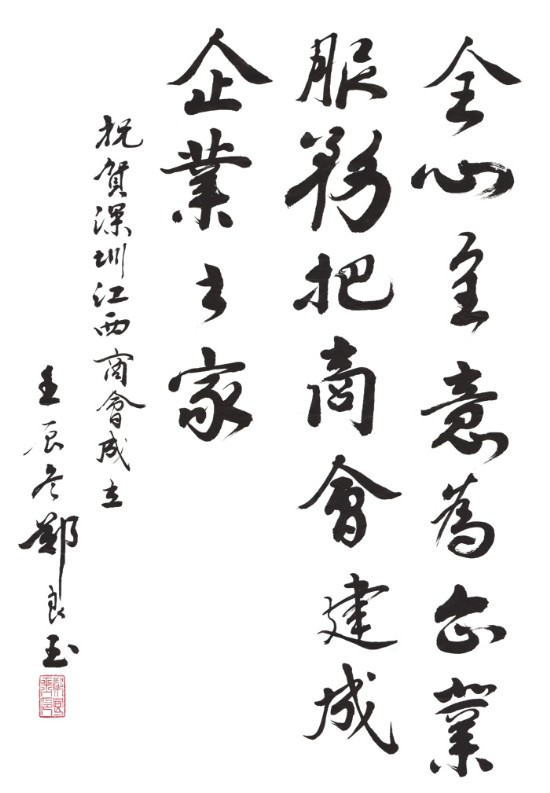 全心全意為企業
服務把商會建成
企業之家
祝賀深圳江西商會成立
壬辰冬鄭良玉